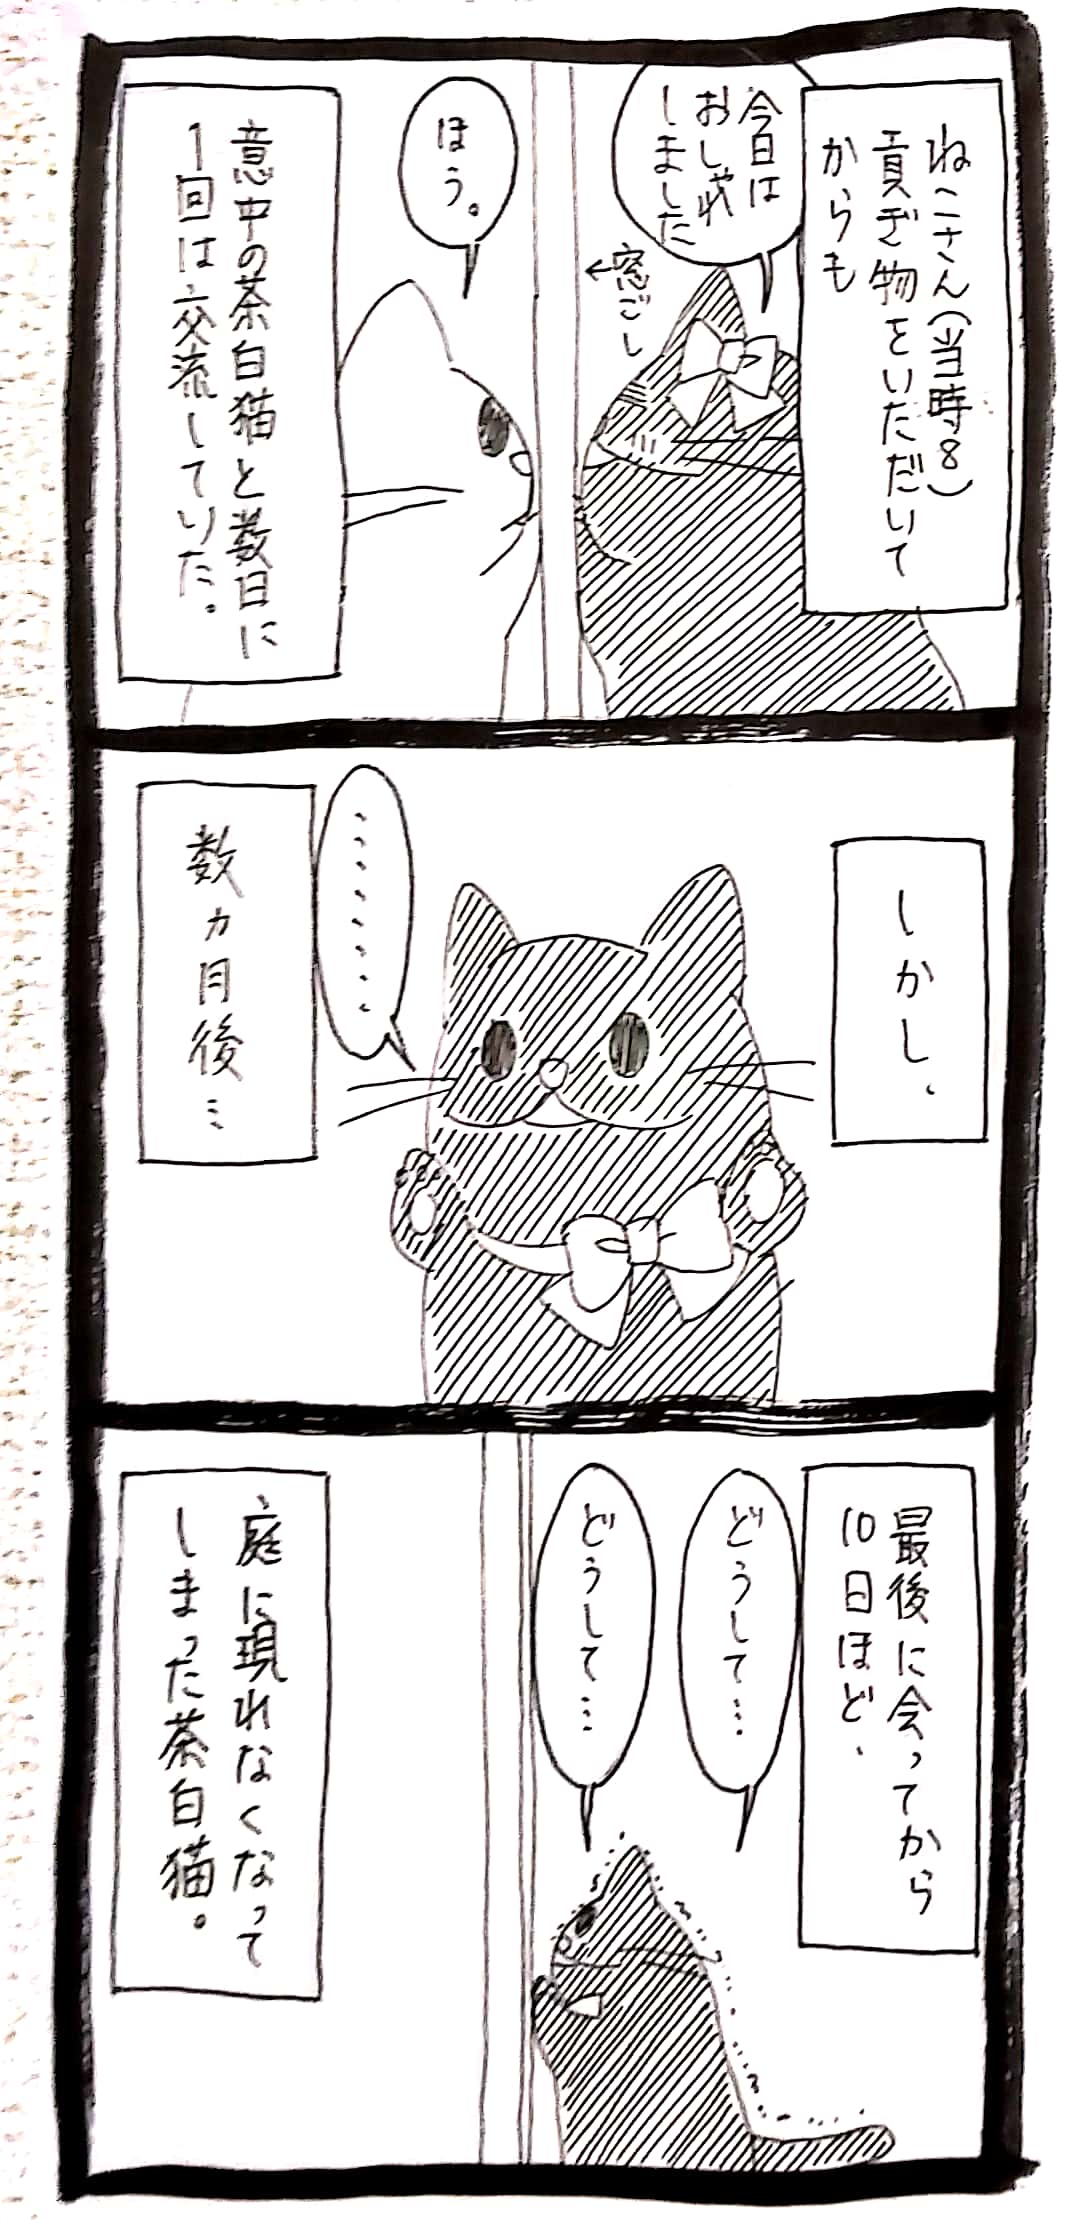 ねこさん(当時8)
貢ぎ物をいただいて
からも
今日は
おしゃれ
しました
←窓ごし
ほう。
意中の茶白猫と数日に
1回は交流していた。
しかし、
・・・・・・・・
数ヵ月後…
最後に会ってから
10日ほど、
どうして…
どうして…
庭に現れなくなって
しまった茶白猫。